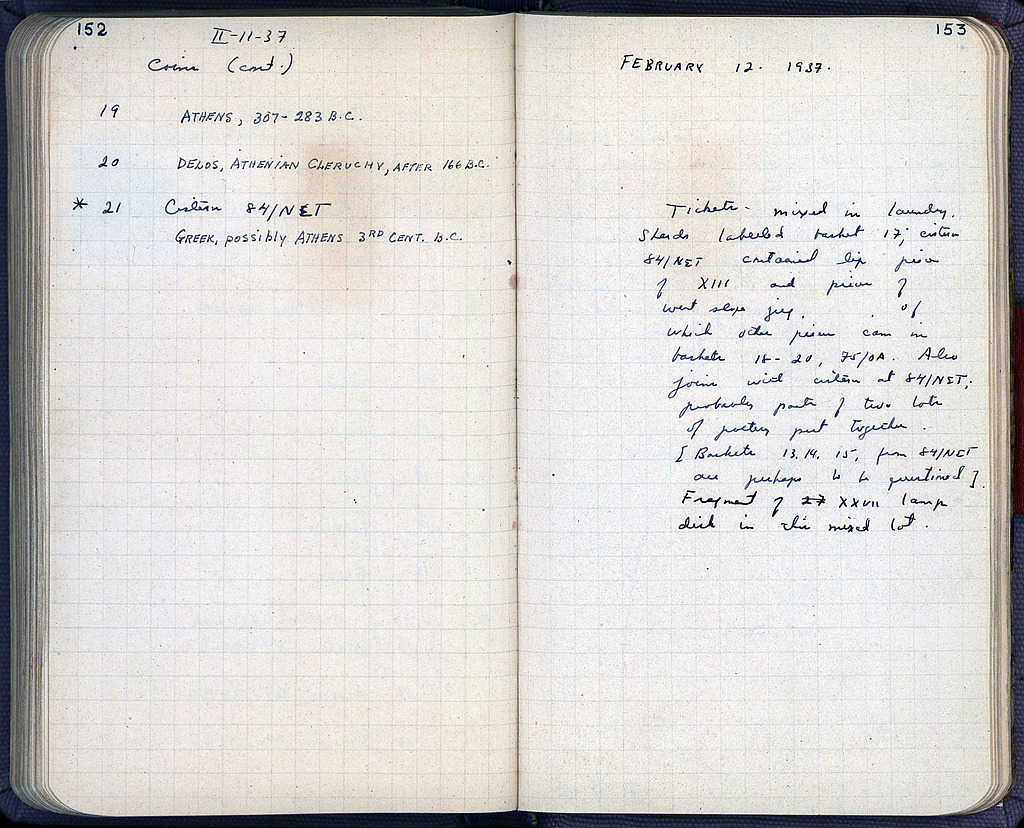 152
II-11-37
Coins (cont.)
19 ATHENS, 307-283 B.C.
20 DELOS, ATHENIAN CLERUCHY, AFTER 166 B.C.
* 21 Cistern 84/NET
GREEK, possibly ATHENS 3RD CENT. B.C.
153
FEBRUARY 12. 1937.
Tickets - mixed in laundry.
Sherds labelled basket 17, cistern
84/NET contained lip piece
of XIII and piece of
west slope jug. of
which other pieces came in
baskets 18-20, 75/OA. Also
joins with cistern at 84/NET;
probably parts of two lots
of pottery put together.
[Baskets 13, 14, 15, from 84/NET
are perhaps to be questioned].
Fragment of 27 XXVII lamp
disk in this mixed lot.